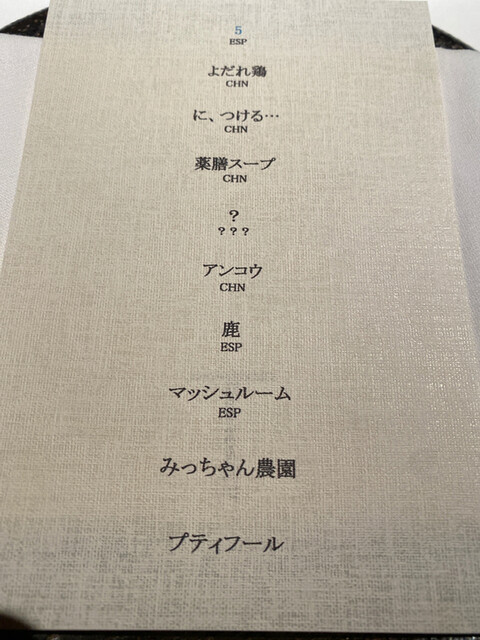 5
ESP
よだれ鶏
CHN
に、つける…
CHN
薬膳スープ
CHN
？
？？？
アンコウ
CHN
鹿
ESP
マッシュルーム
ESP
みっちゃん農園
プティフール